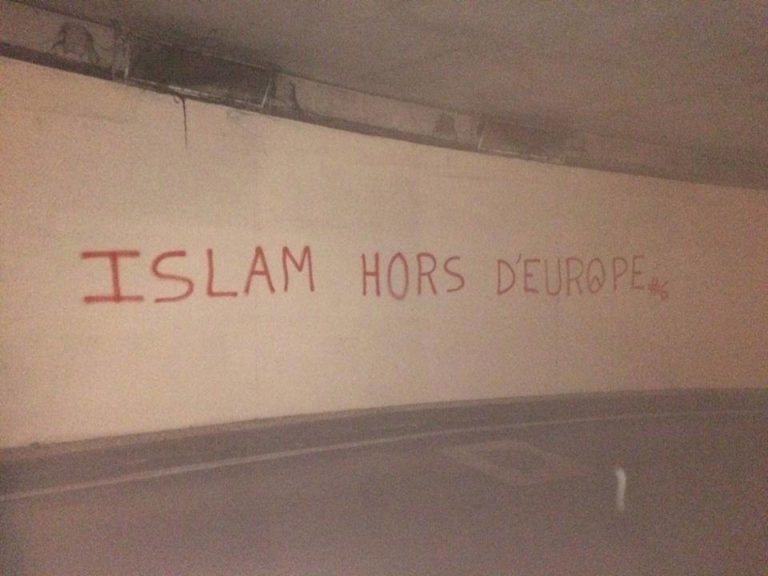 ISLAM HORS D'EUROPE #G